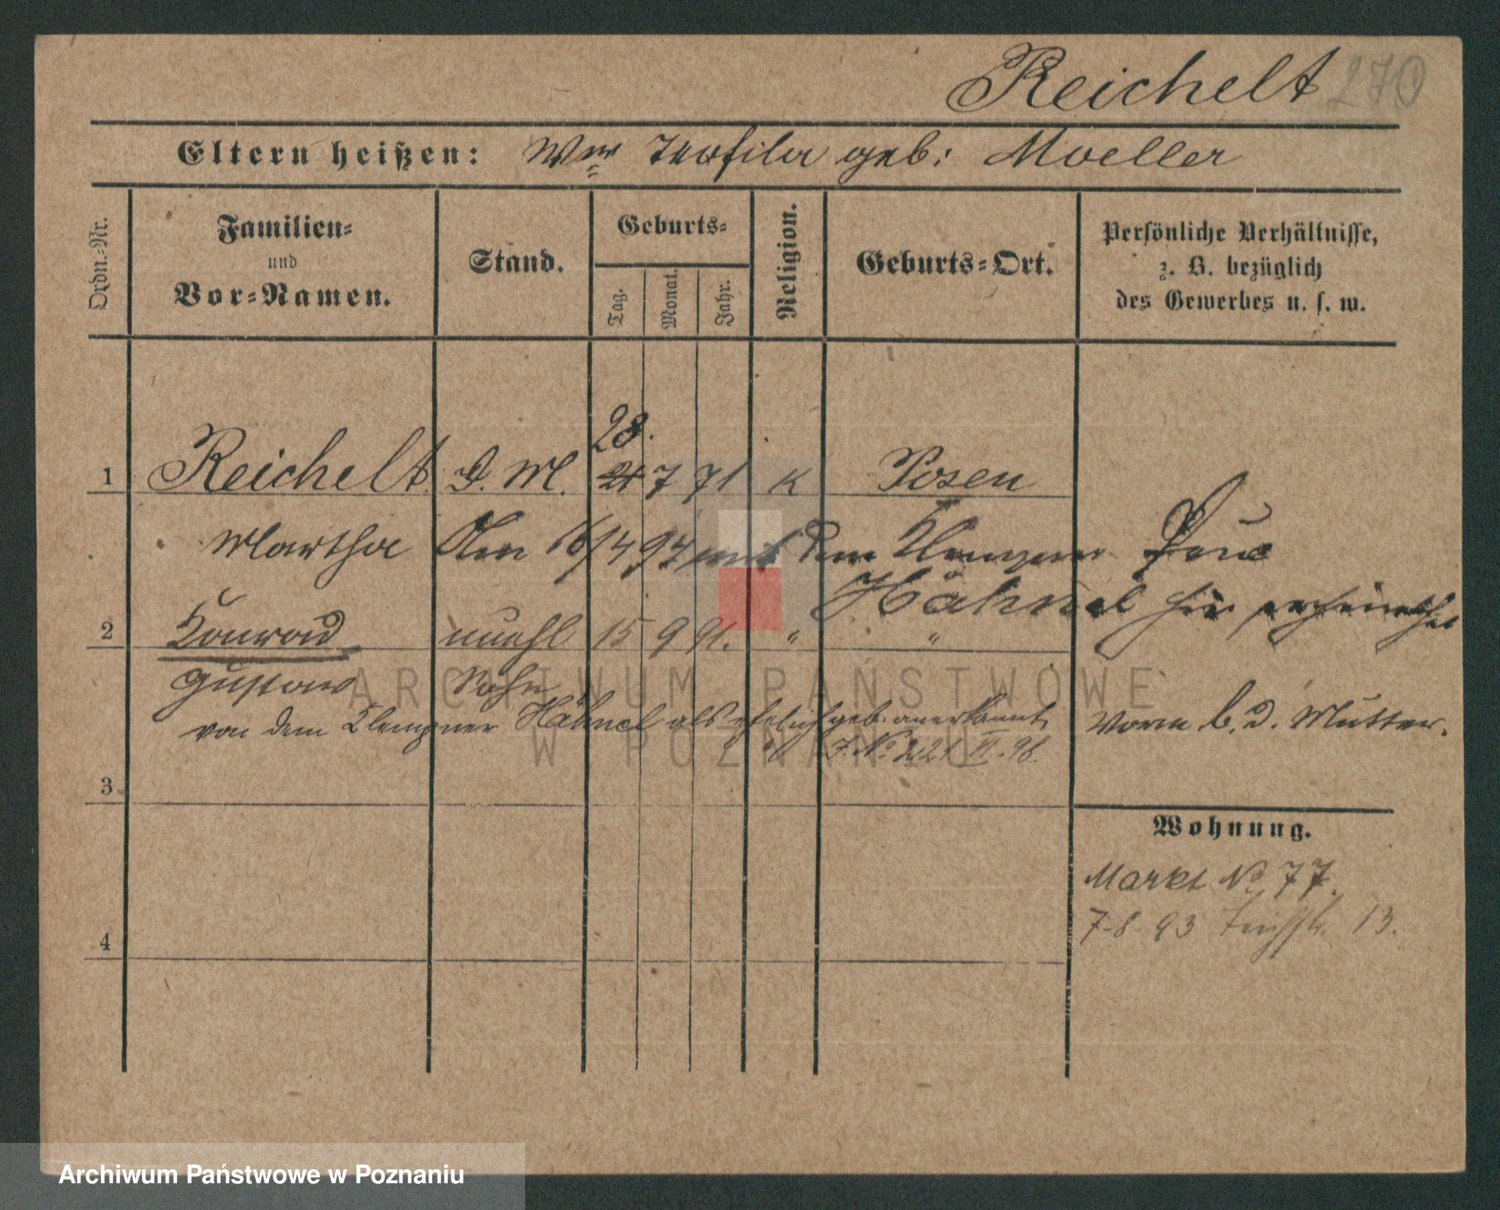 Reichelt 270
Eltern heißen: Wwe Teofila geb: Moeller
Ordn.-Nr.
Familien-
und
Vor-Namen.
Stand.
Geburts-
Tag.
Monat.
Jahr.
Religion.
Geburts-Ort.
Persönliche Verhältnisse,
z. B. bezüglich
des Gewerbes u. s. w.
28.
1 Reichelt D. M. 21 7 71 K Posen
Martha Am 16/4 97 mit dem Klempner Paul
Hähnel hier verheirathet
2 Konrad unehl 15 9 91. " "
Gustav Sohn
von dem Klempner Hähnel als ehelich geb. anerkannt, Vorm b. d. Mutter.
J. No 2121 VI. 98.
3
Wohnung.
Markt No 77.
7-8-93 13.
4
ARCHIWUM PAŃSTWOWE
W POZNANIU
Archiwum Państwowe w Poznaniu